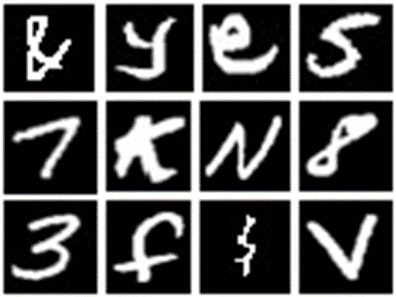 & y e s
7 K N 8
3 f } V